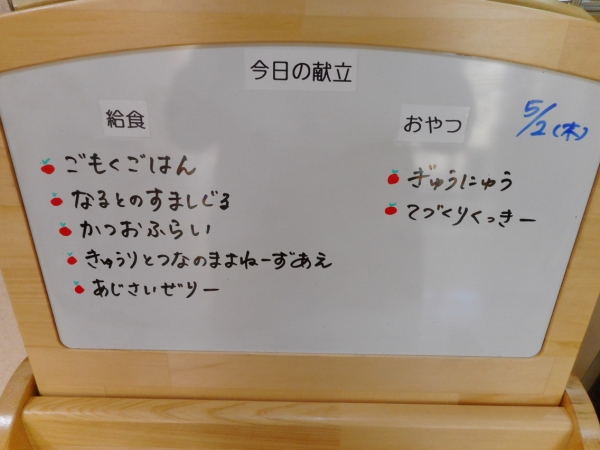 今日の献立
5/2(木)
給食
ごもくごはん
なるとのすましじる
かつおふらい
きゅうりとつなのまよねーずあえ
あじさいぜりー
おやつ
ぎゅうにゅう
てづくりくっきー